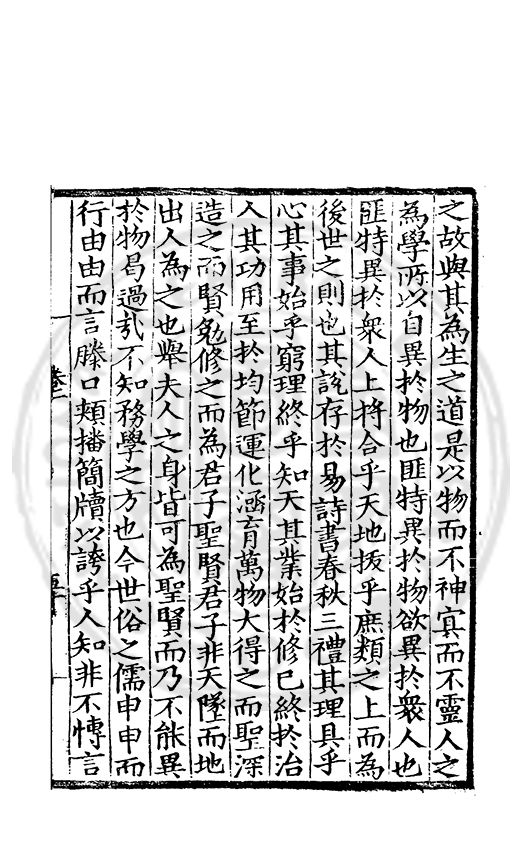 之故與其為生之道是以物而不神冥而不靈人之
為學所以自異於物也匪特異於物欲異於衆人也
匪特異於衆人上將合乎天地拔乎庶類之上而為
後世之則也其說存於易詩書春秋三禮其理具乎
心其事始乎窮理終乎知天其業始於修己終於治
人其功用至於均節運化涵育萬物大得之而聖深
造之而賢勉修之而為君子聖賢君子非天墜而地
出人為之也舉夫人之身皆可為聖賢而乃不能異
於物曷過㢤不知務學之方也今世俗之儒申申而
行由由而言滕口頰播簡牘以誇乎人知非不愽言
卷二
五